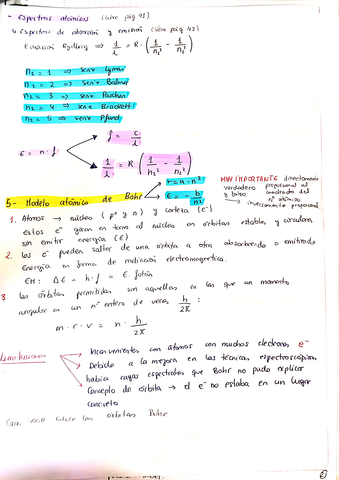 - Espectros atómicos (libro pág 41)
↳ Espectros de absorción y emisión (libro pág 42)
Ecuación Rydberg ⇒ 1/λ = R · (1/n₁² - 1/n₂²)
n₁ = 1 ⇒ serie Lyman
n₁ = 2 ⇒ serie Balmer
n₁ = 3 ⇒ serie Paschen
n₁ = 4 ⇒ serie Brackett
n₁ = 5 ⇒ serie Pfund
f = c/λ
E = h · f
1/λ = R (1/n₁² - 1/n₂²)
5- Modelo atómico de Bohr
r = a · n²
E = - b/n²
MUY IMPORTANTE directamente
proporcional al
cuadrado del
nº atómico
inversamente proporcional
1. Átomos → núcleo (p⁺ y n) y corteza (e⁻)
estos e⁻ giran en torno al núcleo en órbitas estables y circulares
sin emitir energía (E)
2. Los e⁻ pueden saltar de una órbita a otra absorbiendo o emitiendo
Energía en forma de radiación electromagnética.
ΔE = h · f = E. fotón
3 las órbitas permitidas son aquellas en las que un momento
angular es un nº entero de veces h/2π :
m · r · v = n · h/2π
Limitaciones
Inconvenientes con átomos con muchos electrones e⁻
Debido a la mejora en las técnicas espectroscópicas
había rayas espectrales que Bohr no pudo explicar
Concepto de órbita → el e⁻ no estaba en un lugar
concreto
órbitas Bohr